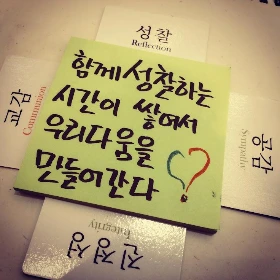 성찰
Reflection
함께 성찰하는
시간이 쌓여서
우리다움을
만들어간다
교감
Communion
공감
Sympathy
진정성
Integrity